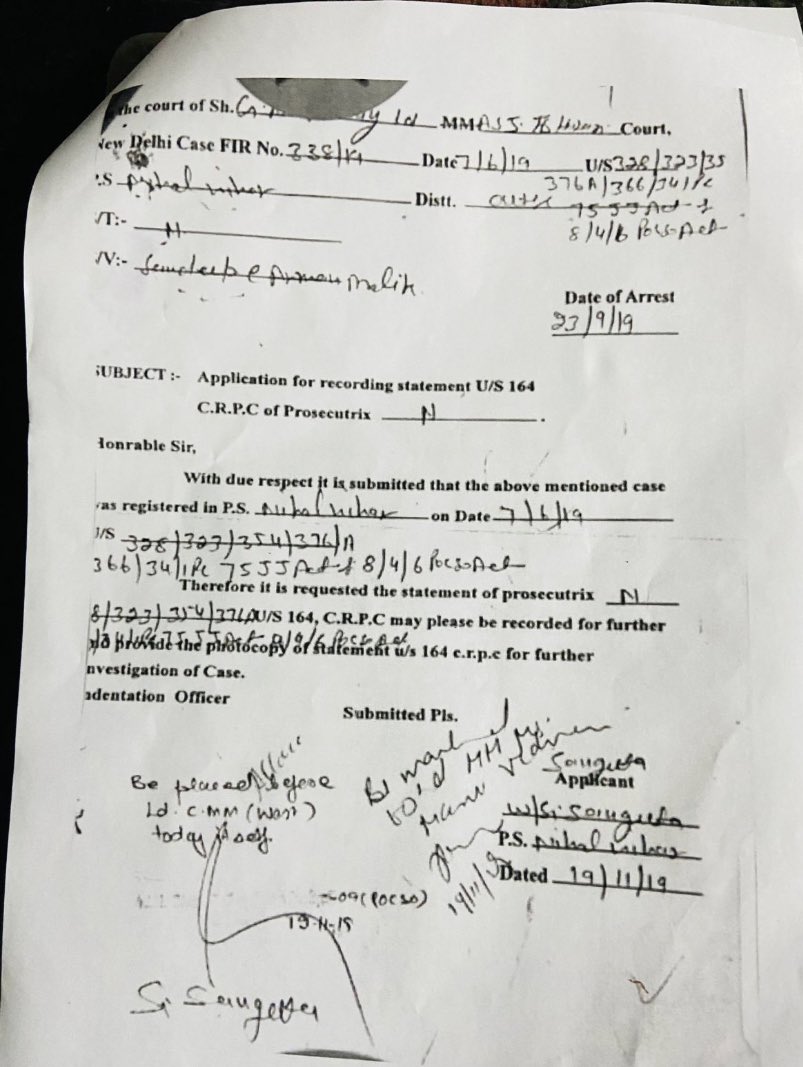 the court of Sh. Ld MM Court,
New Delhi Case FIR No. 338/19 Date 7/6/19 U/S 328/323/35
P.S Distt. 376A/366/34 IPC
75 JJ Act &
/T:- N 8/4/6 Pocso Act
/V:- Malik
Date of Arrest
23/9/19
SUBJECT :- Application for recording statement U/S 164
C.R.P.C of Prosecutrix N .
Honrable Sir,
With due respect it is submitted that the above mentioned case
was registered in P.S. Nihal Vihar on Date 7/6/19
U/S 328/323/354/376/A
366/34 IPC 75 JJ Act & 8/4/6 Pocso Act
Therefore it is requested the statement of prosecutrix N
8/323/354/376A U/S 164, C.R.P.C may please be recorded for further
provide the photocopy of statement u/s 164 c.r.p.c for further
nvestigation of Case.
adentation Officer
Submitted Pls.
Be placed before
Ld. CMM (West)
today itself.
Be marked
to Ld MM
19/11/19
Sangeeta
Applicant
W/SI Sangeeta
P.S. Nihal Vihar
Dated 19/11/19
-09 (POCSO)
19-11-19
SI Sangeeta